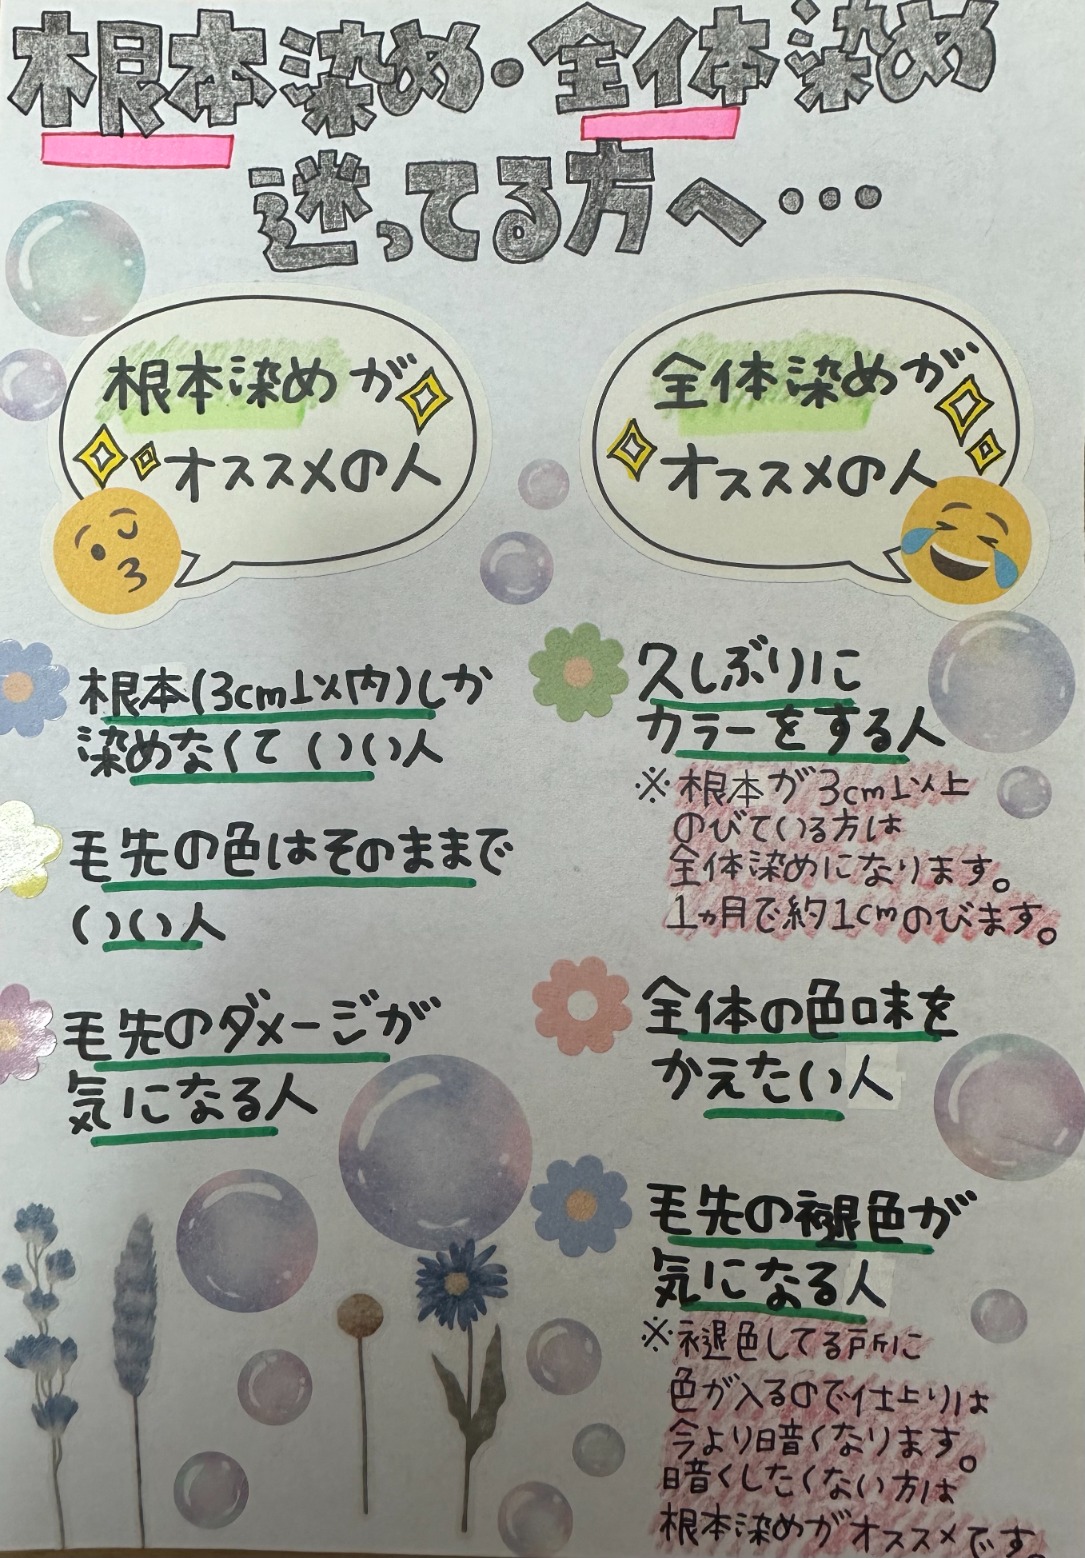 根本染め・全体染め
迷ってる方へ・・・
根本染めが
オススメの人
全体染めが
オススメの人
根本(3cm以内)しか
染めなくていい人
毛先の色はそのままで
いい人
毛先のダメージが
気になる人
久しぶりに
カラーをする人
※根本が3cm以上
のびている方は
全体染めになります。
1ヵ月で約1cmのびます。
全体の色味を
かえたい人
毛先の褪色が
気になる人
※褪色してる所に
色が入るので仕上りは
今より暗くなります。
暗くしたくない方は
根本染めがオススメです。